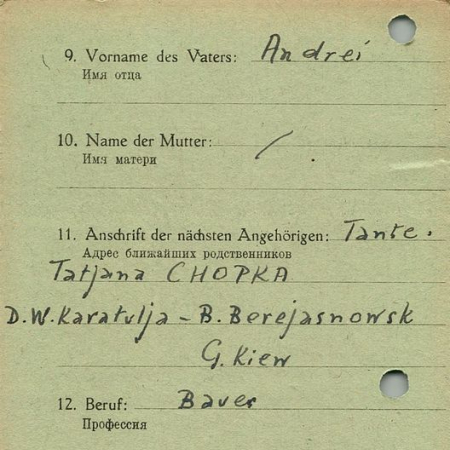 9. Vorname des Vaters: Andrei
Имя отца
10. Name der Mutter: /
Имя матери
11. Anschrift der nächsten Angehörigen: Tante.
Адрес ближайших родственников
Tatjana CHOPKA
D.W. Karatulja - B. Berejasnowsk
G. Kiew
12. Beruf: Bauer
Профессия